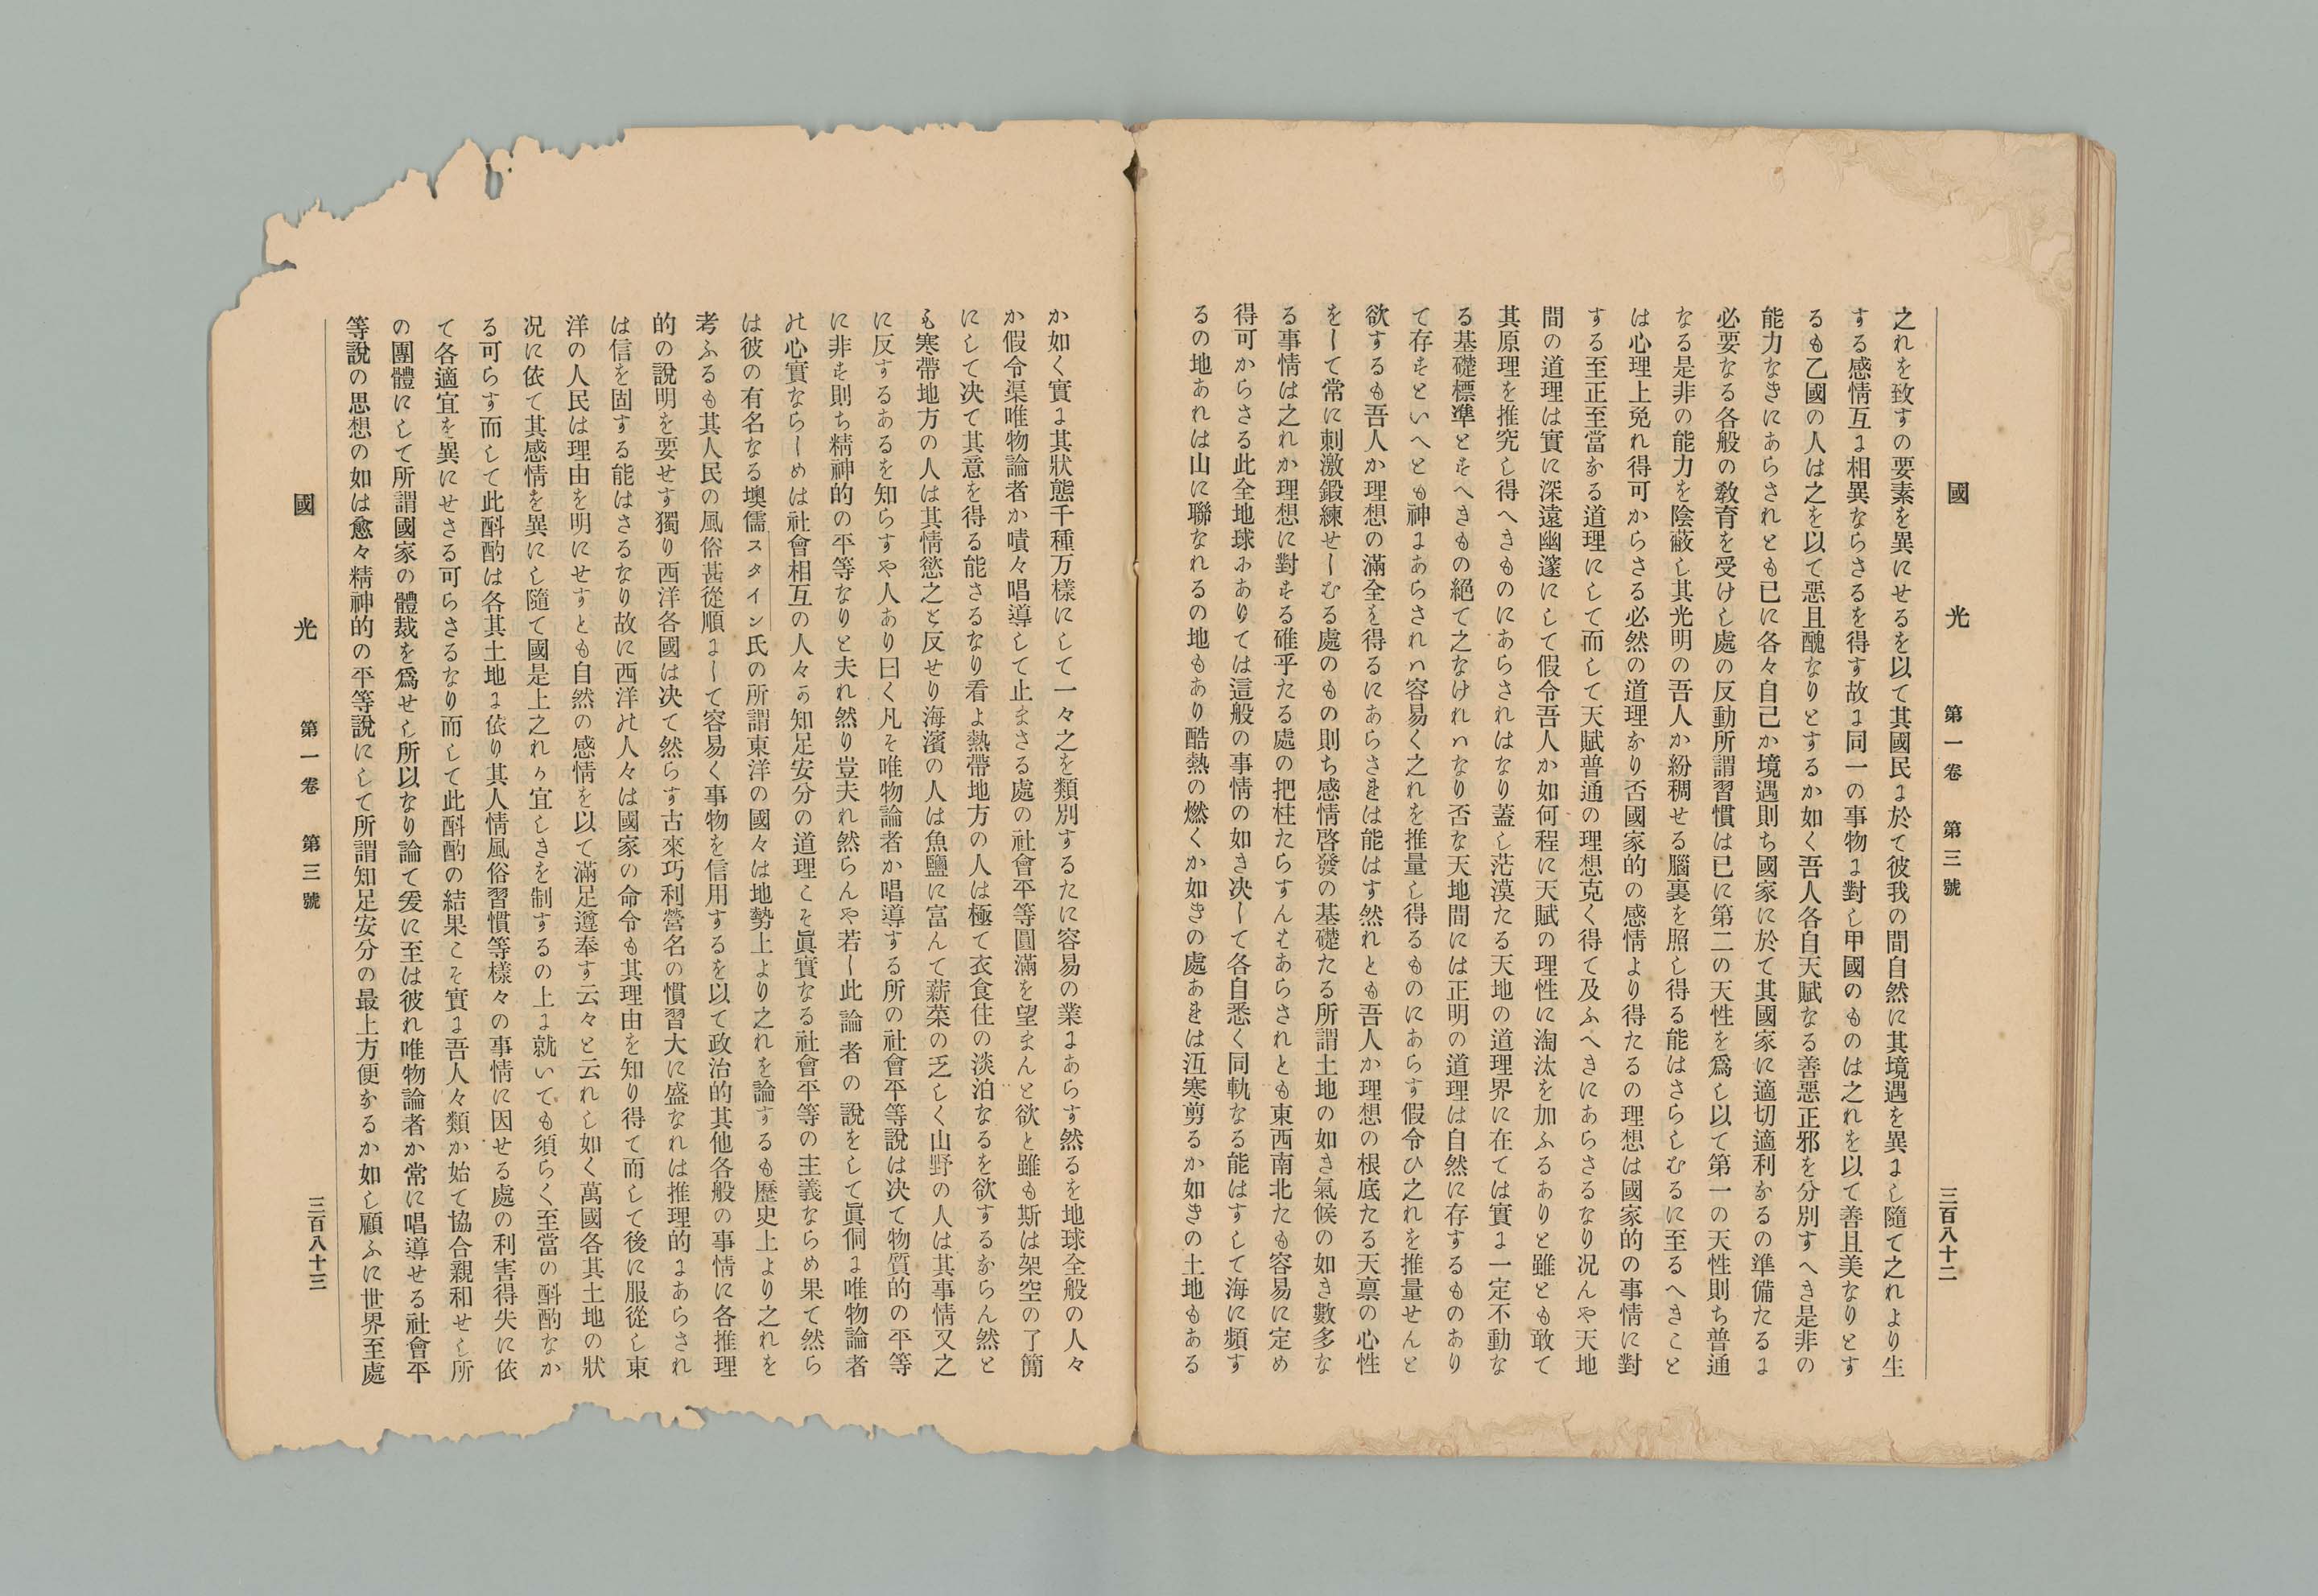 國光 第一卷 第三號 三百八十二
之れを致すの要素を異にせるを以て其國民に於て彼我の間自然に其境遇を異にし隨て之れより生
する感情互に相異ならさるを得す故に同一の事物に對し甲國のものは之れを以て善且美なりとす
るも乙國の人は之を以て惡且醜なりとするか如く吾人各自天賦なる善惡正邪を分別すへき是非の
能力なきにあらされとも已に各々自己か境遇則ち國家に於て其國家に適切適利なるの準備たるに
必要なる各般の敎育を受けし處の反動所謂習慣は已に第二の天性を爲し以て第一の天性則ち普通
なる是非の能力を陰蔽し其光明の吾人か紛稠せる腦裏を照し得る能はさらしむるに至るへきこと
は心理上免れ得可からさる必然の道理なり否國家的の感情より得たるの理想は國家的の事情に對
する至正至當なる道理にして而して天賦普通の理想克く得て及ふへきにあらさるなり況んや天地
間の道理は實に深遠幽邃にして假令吾人か如何程に天賦の理性に淘汰を加ふるありと雖とも敢て
其原理を推究し得へきものにあらされはなり蓋し茫漠たる天地の道理界に在ては實に一定不動な
る基礎標凖とすへきもの絕て之なけれハなり否な天地間には正明の道理は自然に存するものあり
て存すといへとも神にあらされハ容易く之れを推量し得るものにあらす假令ひ之れを推量せんと
欲するも吾人か理想の滿全を得るにあらされは能はす然れとも吾人か理想の根底たる天禀の心性
をして常に刺激鍛練せしむる處のもの則ち感情啓發の基礎たる所謂土地の如き氣候の如き數多な
る事情は之れか理想に對する確乎たる處の把柱たらすんはあらされとも東西南北たも容易に定め
得可からさる此全地球にありては這般の事情の如き决して各自悉く同軌なる能はすして海に頻す
るの地あれは山に聯なれるの地もあり酷熱の燃くか如きの處あれは沍寒剪るか如きの土地もある
か如く實に其狀態千種万樣にして一々之を類別するたに容易の業にあらす然るを地球全般の人々
か假令渠唯物論者か嘖々唱導して止まさる處の社會平等圓滿を望まんと欲と雖も斯は架空の了簡
にして决て其意を得る能さるなり看よ熱帶地方の人は極て衣食住の淡泊なるを欲するならん然と
も寒帶地方の人は其情慾之と反せり海濱の人は魚鹽に富んて薪菜の乏しく山野の人は其事情又之
に反するあるを知らすや人あり曰く凡そ唯物論者か唱導する所の社會平等說は决て物質的の平等
に非す則ち精神的の平等なりと夫れ然り豈夫れ然らんや若し此論者の說をして眞侗に唯物論者
の心實ならしめは社會相互の人々の知足安分の道理こそ眞實なる社會平等の主義ならめ果て然ら
は彼の有名なる墺儒スタイン氏の所謂東洋の國々は地勢上より之れを論するも歷史上より之れを
考ふるも其人民の風俗甚從順にして容易く事物を信用するを以て政治的其他各般の事情に各推理
的の說明を要せす獨り西洋各國は决て然らす古來巧利營名の慣習大に盛なれは推理的にあらされ
は信を固する能はさるなり故に西洋の人々は國家の命令も其理由を知り得て而して後に服從し東
洋の人民は理由を明にせすとも自然の感情を以て滿足遵奉す云々と云れし如く萬國各其土地の狀
况に依て其感情を異にし隨て國是上之れか宜しきを制するの上に就いても須らく至當の斟酌なか
る可らす而して此斟酌は各其土地に依り其人情風俗習慣等樣々の事情に因せる處の利害得失に依
て各適宜を異にせさる可らさるなり而して此斟酌の結果こそ實に吾人々類か始て協合親和せし所
の團體にして所謂國家の體裁を爲せし所以なり論て爰に至は彼れ唯物論者か常に唱導せる社會平
等說の思想の如は愈々精神的の平等說にして所謂知足安分の最上方便なるか如し顧ふに世界至處
國光 第一卷 第三號 三百八十三